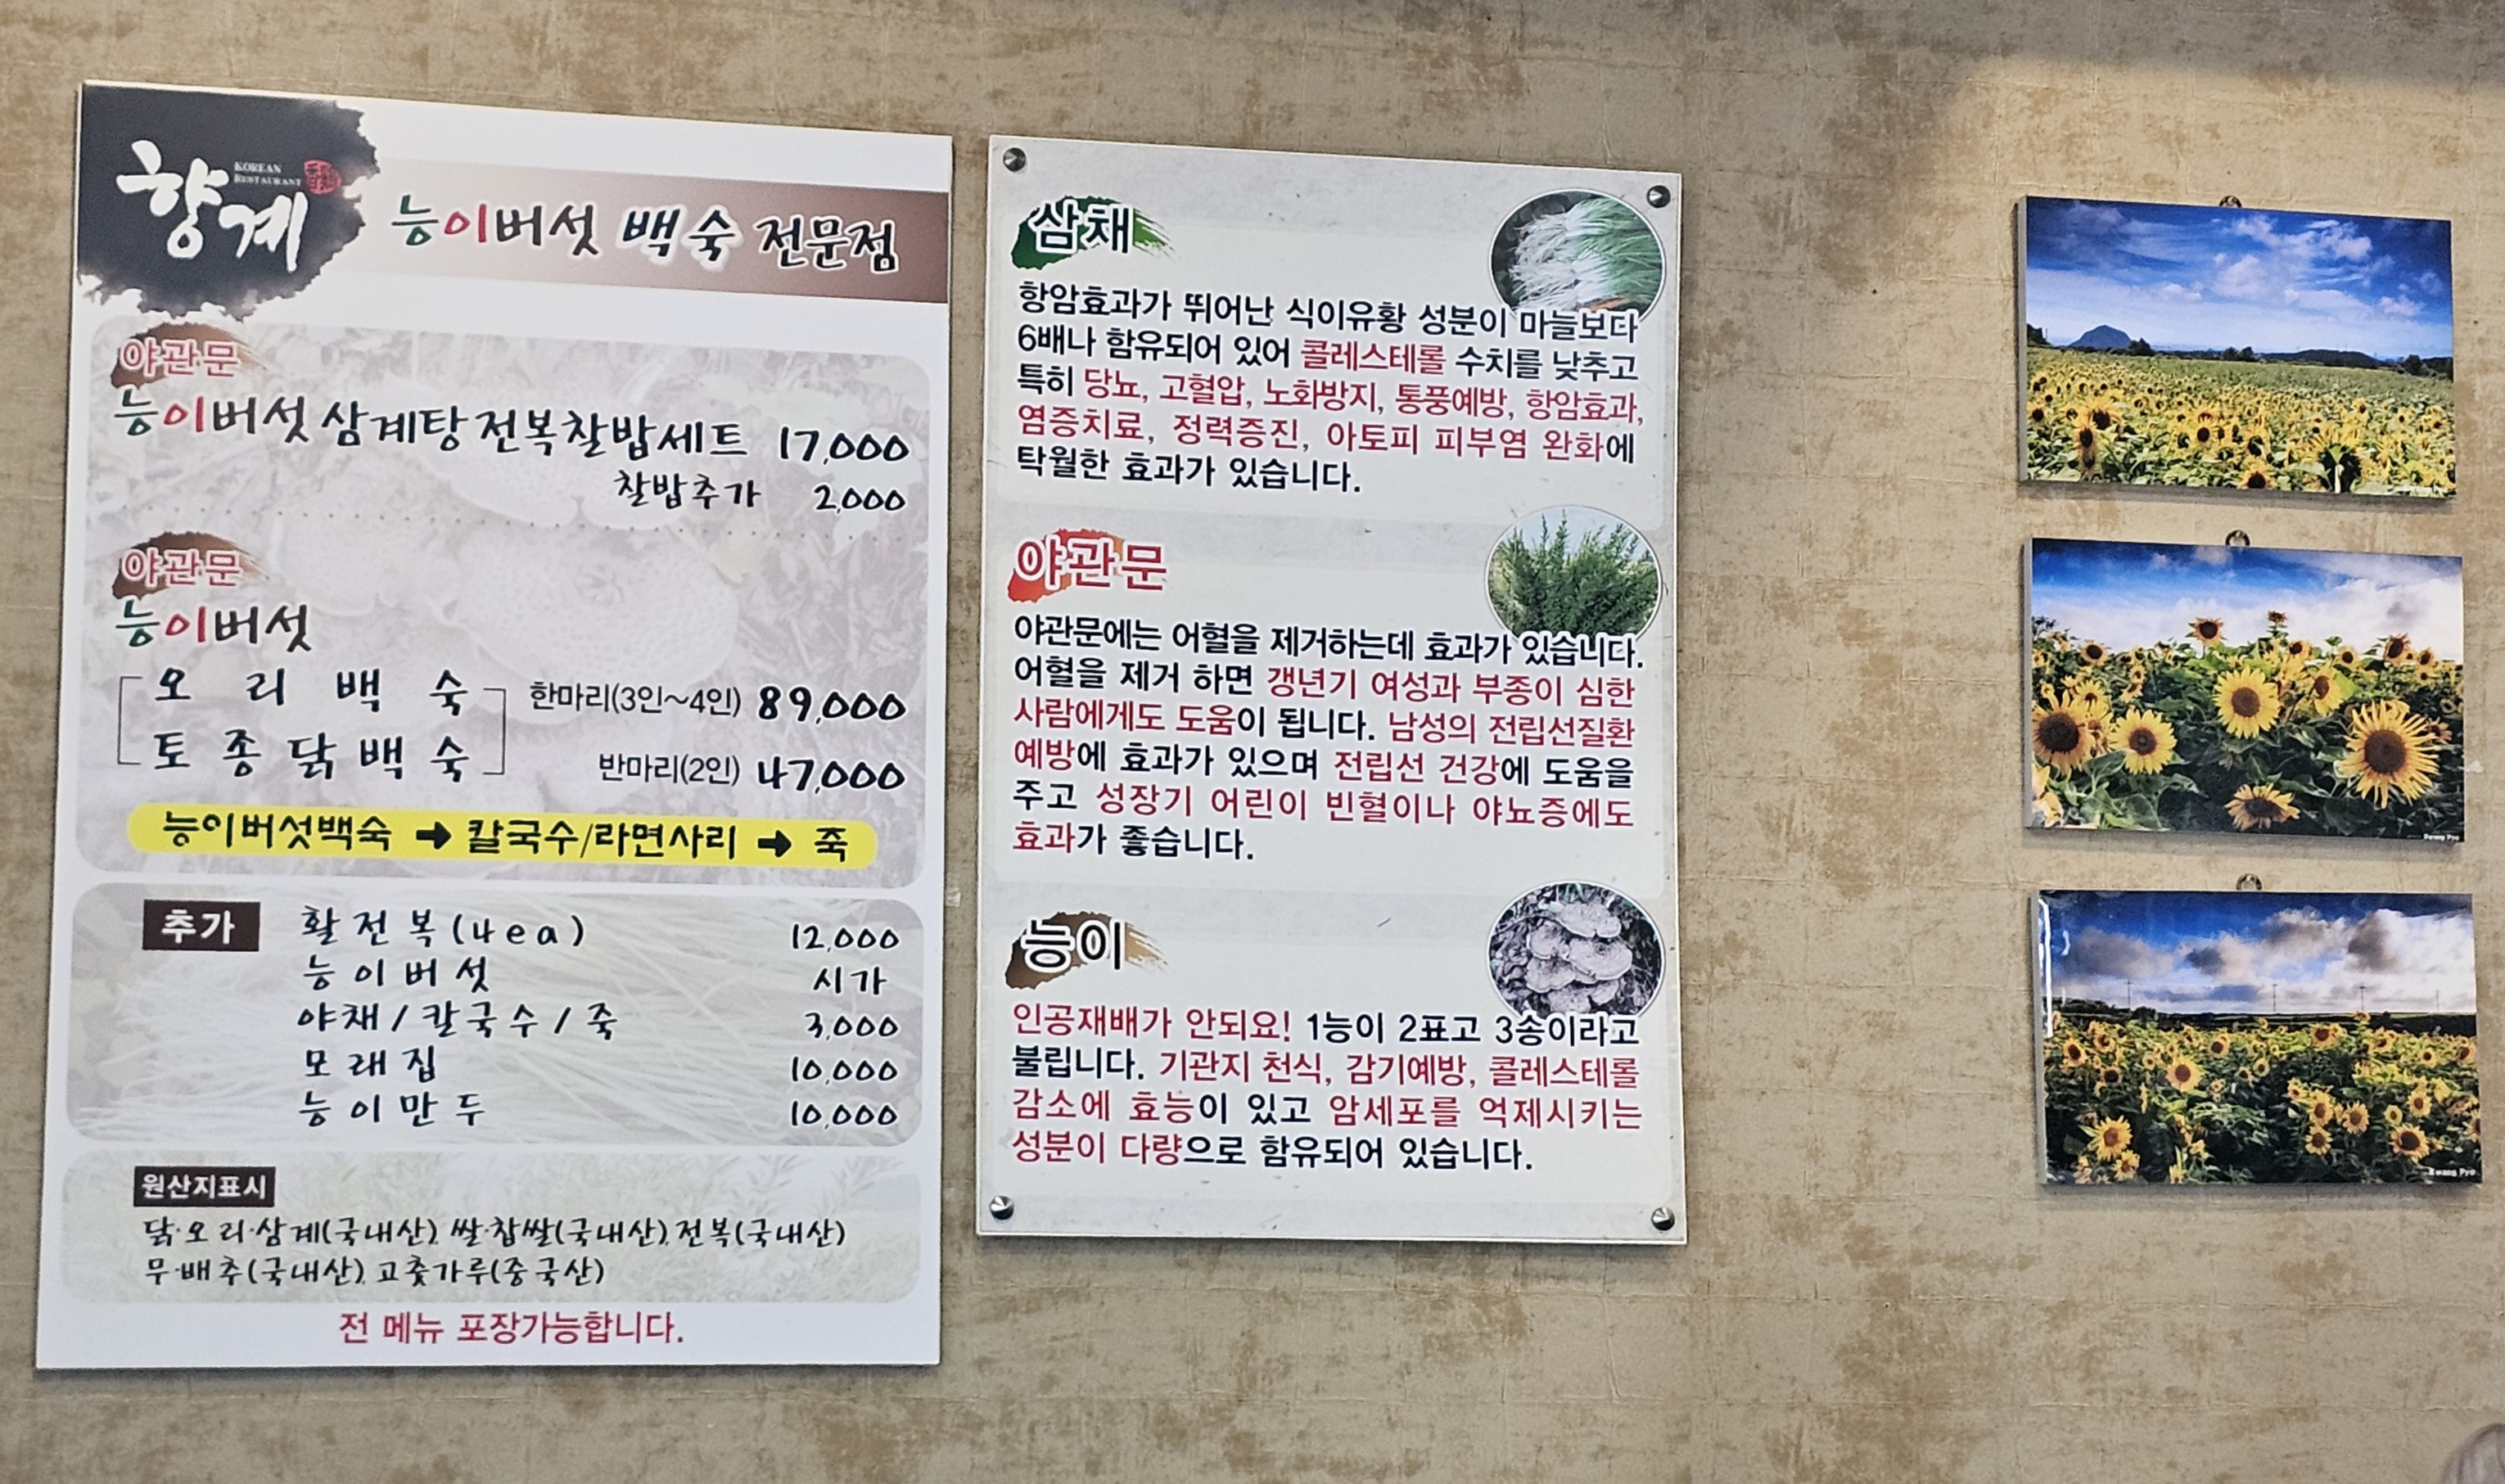 향계
KOREAN
RESTAURANT
능이버섯 백숙 전문점
야관문
능이버섯 삼계탕 전복찰밥세트 17,000
찰밥추가 2,000
야관문
능이버섯
오리백숙 한마리(3인~4인) 89,000
토종닭백숙 반마리(2인) 47,000
능이버섯백숙 ➡ 칼국수/라면사리 ➡ 죽
추가 활전복(4ea) 12,000
능이버섯 시가
야채/칼국수/죽 3,000
모래집 10,000
능이만두 10,000
원산지표시
닭·오리·삼계(국내산), 쌀·찹쌀(국내산), 전복(국내산)
무·배추(국내산), 고춧가루(중국산)
전 메뉴 포장가능합니다.
삼채
항암효과가 뛰어난 식이유황 성분이 마늘보다
6배나 함유되어 있어 콜레스테롤 수치를 낮추고
특히 당뇨, 고혈압, 노화방지, 통풍예방, 항암효과,
염증치료, 정력증진, 아토피 피부염 완화에
탁월한 효과가 있습니다.
야관문
야관문에는 어혈을 제거하는데 효과가 있습니다.
어혈을 제거 하면 갱년기 여성과 부종이 심한
사람에게도 도움이 됩니다. 남성의 전립선질환
예방에 효과가 있으며 전립선 건강에 도움을
주고 성장기 어린이 빈혈이나 야뇨증에도
효과가 좋습니다.
능이
인공재배가 안되요! 1능이 2표고 3송이라고
불립니다. 기관지 천식, 감기예방, 콜레스테롤
감소에 효능이 있고 암세포를 억제시키는
성분이 다량으로 함유되어 있습니다.
Kwang Pyo
Kwang Pyo